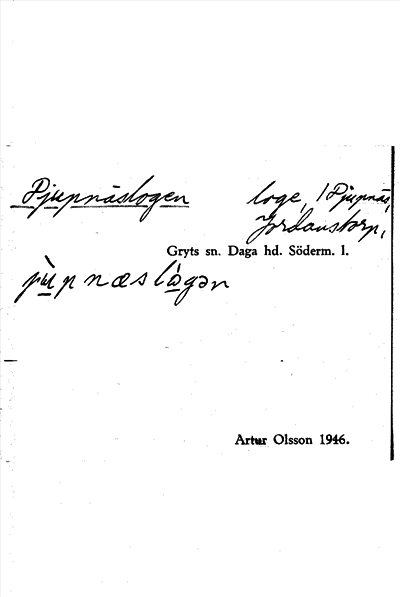 Djupnäslogen loge, i Djupnäs,
Jordanstorp,
Gryts sn. Daga hd. Söderm. l.
jùpnæslògən
Artur Olsson 1946.